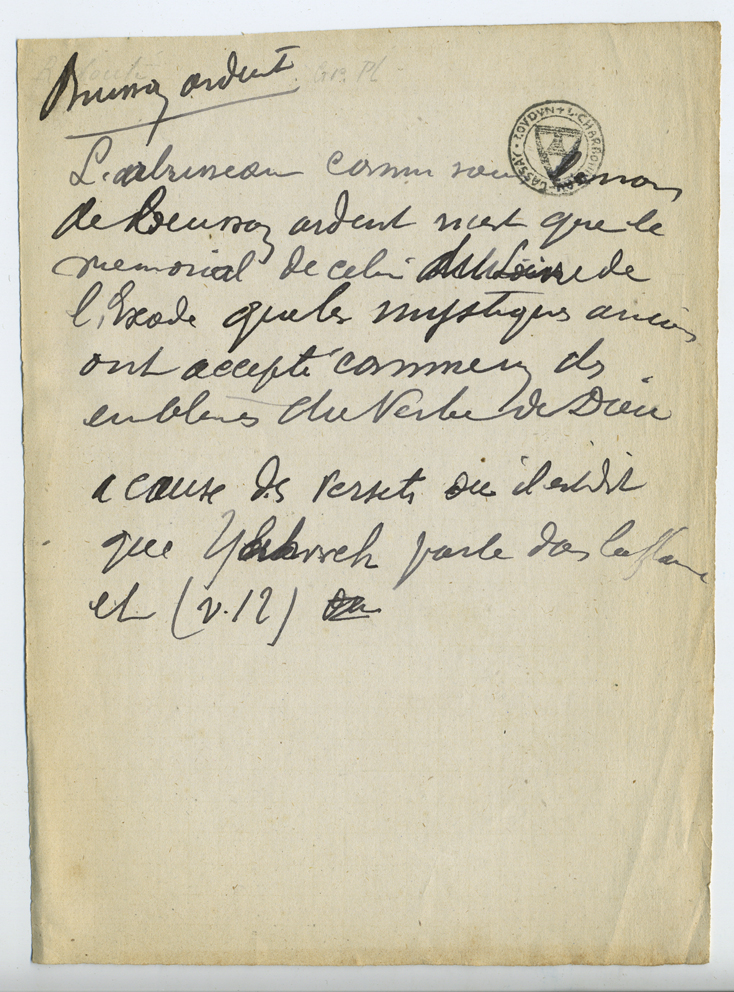 Buisson ardent
Gr. Pl -
LOUDUN + L. CHARBONNEAU-LASSAY
L'arbrisseau connu sous le nom
de Buisson ardent n'est que le
memorial de celui du Livre de
l'Exode que les mystiques anciens
ont accepté comme un des
emblèmes du Verbe de Dieu
a cause des versets ou il est dit
que Yahweh parle dans la flamme
et (v. 12) ou